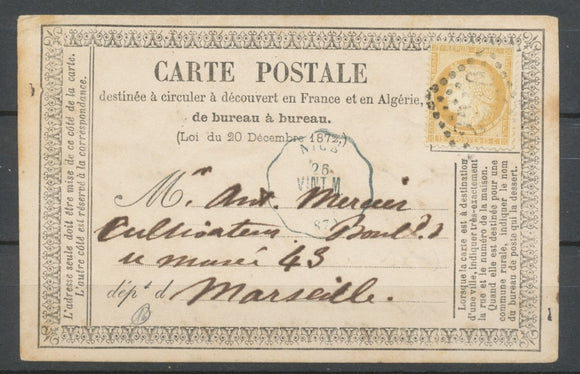 CARTE POSTALE
destinée à circuler à découvert en France et en Algérie,
de bureau à bureau.
(Loi du 20 Décembre 1872.)
NICE
26
VINTM
87
Mr Ant. Mercier
Cultivateur Bould d
u musée 43
dépt d Marseille.
L'adresse seule doit être mise de ce côté de la carte.
L'autre côté est réservé à la correspondance.
Lorsque la carte est à destination
d'une ville, indiquer très-exactement
la rue et le numéro de la maison.
Quand elle est destinée pour une
commune rurale, indiquer le nom
du bureau de poste qui la dessert.